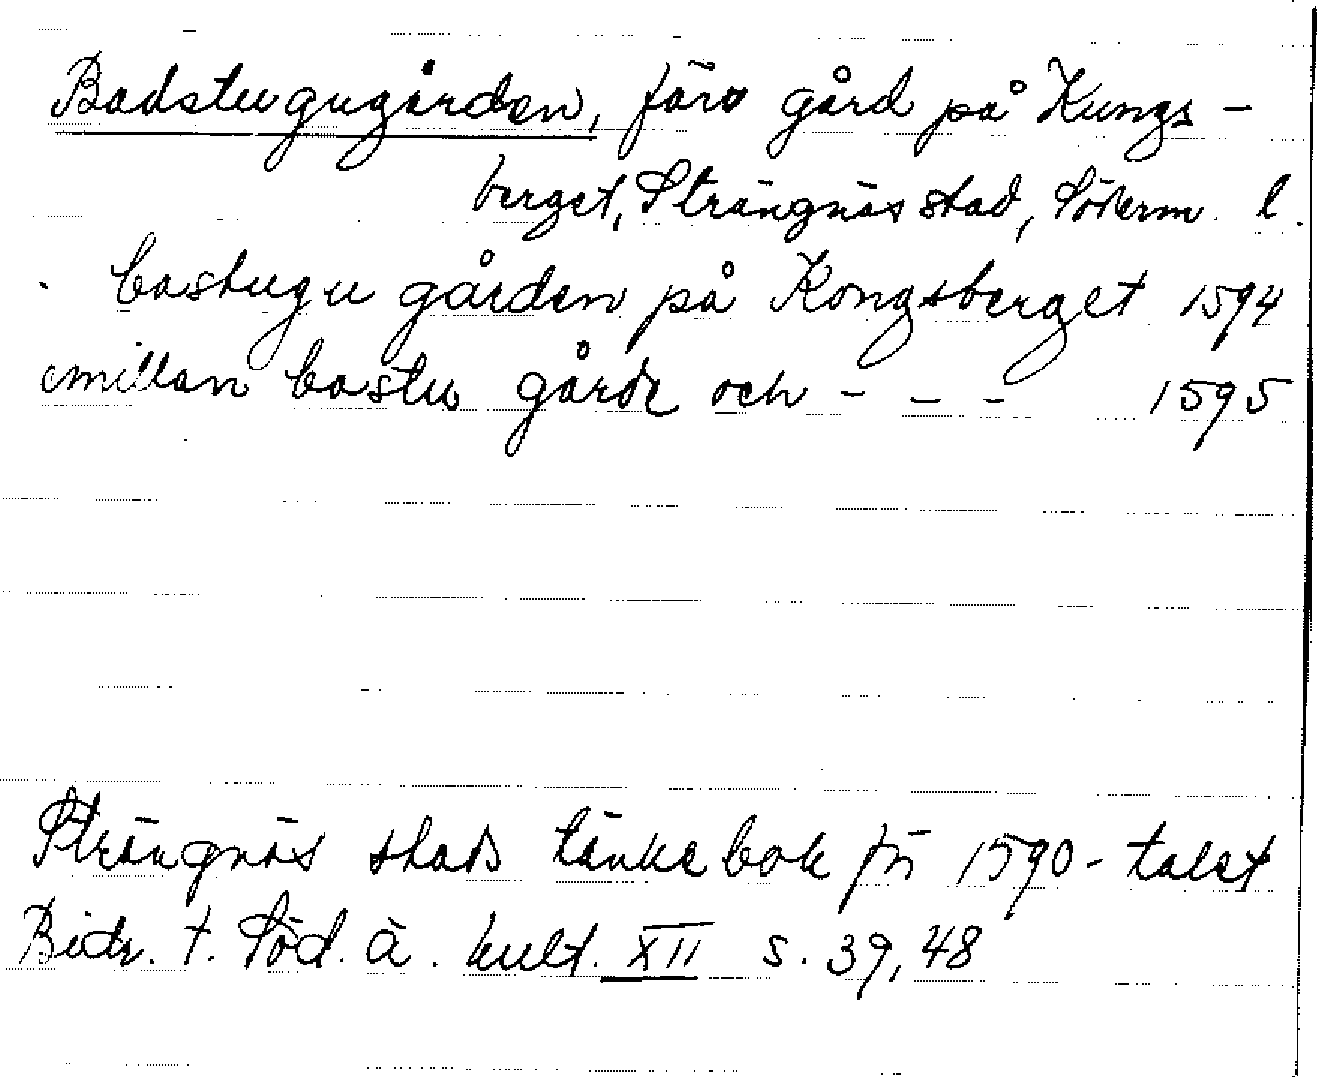 Badstugugården, förr gård på Kungs-
berget, Strängnäs stad, Söderm. l.
bastugu gården på Kongsberget 1594
emillan bastu gårde och - - - 1595
Strängnäs stads tänkebok för 1590-talet
Bidr. t. Söd. ä. kult. XII s. 39, 48